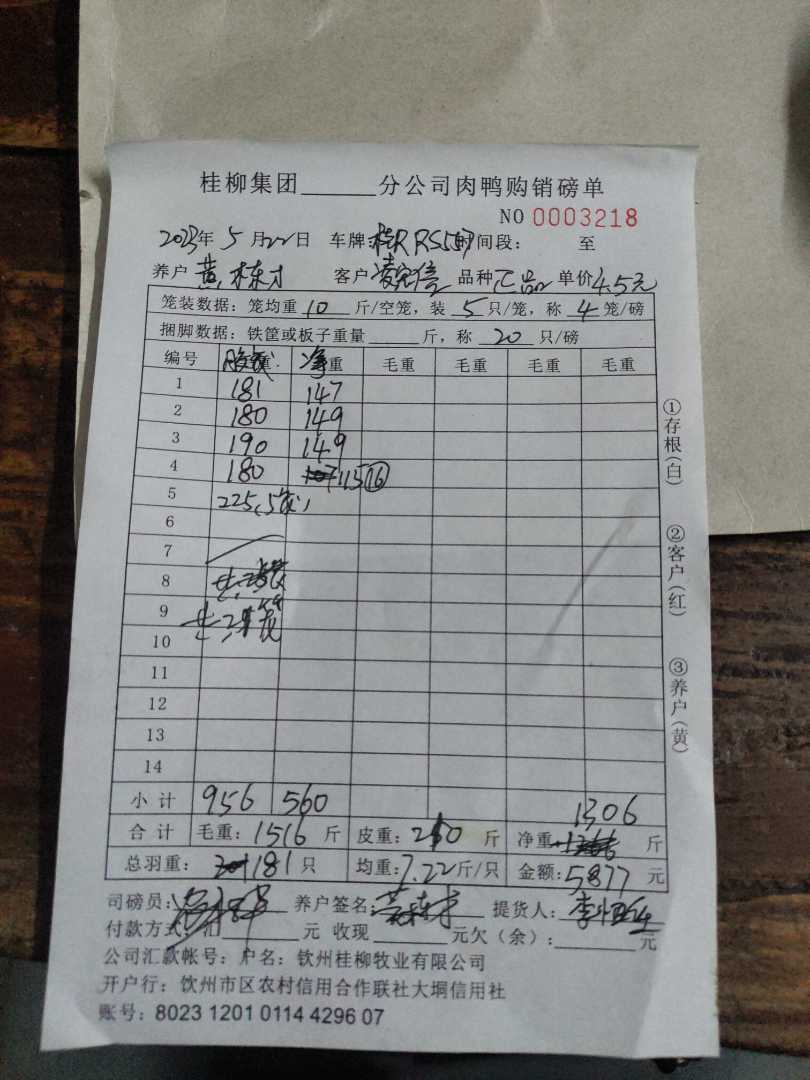 桂柳集团______分公司肉鸭购销磅单
NO 0003218
2023年 5 月 22 日 车牌: 桂R RS 时间段: 至
养户 黄栋才 客户 品种 正品 单价 4.5元
笼装数据: 笼均重 10 斤/空笼, 装 5 只/笼, 称 4 笼/磅
捆脚数据: 铁筐或板子重量____斤, 称 20 只/磅
编号 重 净重 毛重 毛重 毛重 毛重
1 181 147
2 180 149
3 190 149
4 180 115 16
5 225
6
7
8
9
10
11
12
13
14
小计 956 560 1306
合计 毛重: 1516 斤 皮重: 210 斤 净重: 斤
总羽重: 181 只 均重: 7.22 斤/只 金额: 5877 元
①存根(白)
②客户(红)
③养户(黄)
司磅员: 养户签名: 黄栋才 提货人:
付款方式: 扣____元 收现____元欠(余):____元
公司汇款帐号: 户名: 钦州桂柳牧业有限公司
开户行: 钦州市区农村信用合作联社大垌信用社
账号: 8023 1201 0114 4296 07